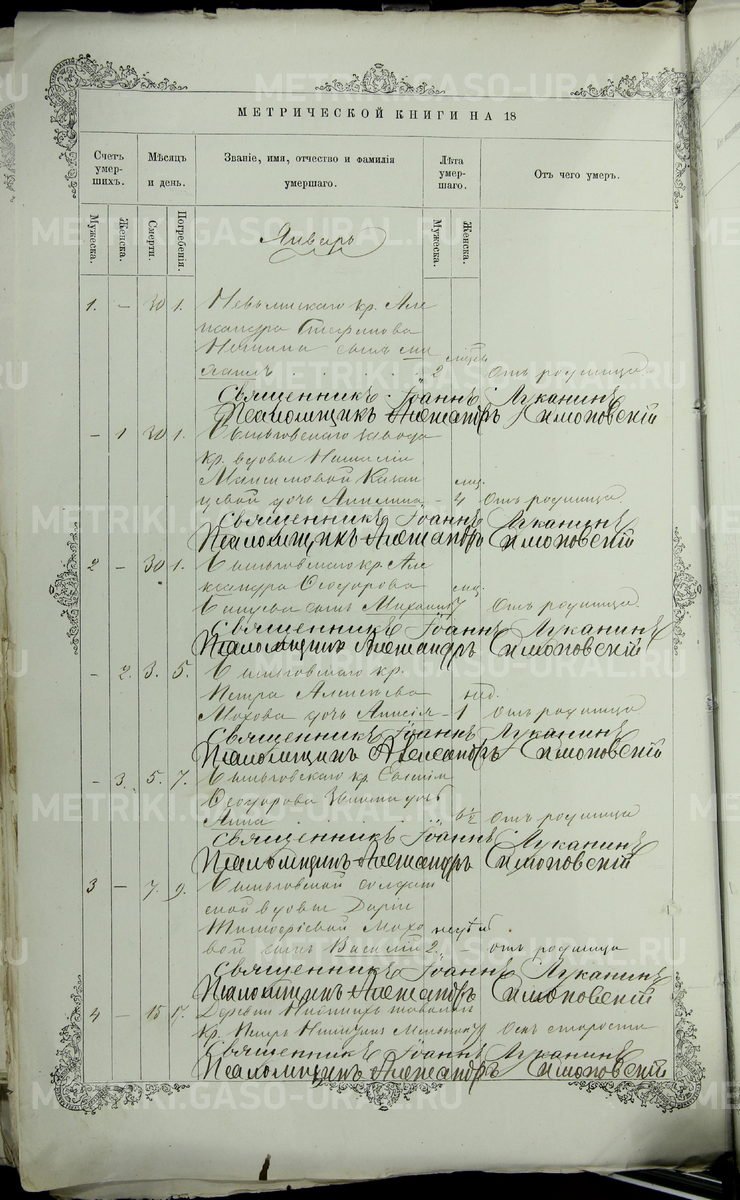 МЕТРИЧЕСКОЙ КНИГИ НА 18
Счетъ умер-шихъ.
Мѣсяцъ и день.
Званіе, имя, отчество и фамилія умершаго.
Лѣта умер-шаго.
Отъ чего умеръ.
Мужеска.
Женска.
Смерти.
Погребенія.
Мужеска.
Женска.
Январь
1. – 30 1. Невьянскаго кр. Але
ксандра Стефанова
сынъ Ми
хаилъ . . . . . 2 Отъ родимца
Священникъ Іоаннъ Луканинъ
Псаломщикъ Александръ Симоновскій
– 1 30 1. завода
кр. вдовы
Максимовой
цевой дочь – 4 Отъ родимца.
Священникъ Іоаннъ Луканинъ
Псаломщикъ Александръ Симоновскій
2 – 30 1. Быньговскаго кр. Але
ксандра Ѳеодорова
сынъ Михаилъ 7 Отъ родимца.
Священникъ Іоаннъ Луканинъ
Псаломщикъ Александръ Симоновскій
– 2. 3. 5. Быньговскаго кр.
Петра Алексѣева нед.
Мохова дочь Анисія – 1 Отъ родимца
Священникъ Іоаннъ Луканинъ
Псаломщикъ Александръ Симоновскій
– 3. 5. 7. Быньговскаго кр.
Ѳеодорова
Анна . . . . . Отъ родимца
Священникъ Іоаннъ Луканинъ
Псаломщикъ Александръ Симоновскій
3 – 7. 9. Быньговской солдат
ской вдовы Даріи
Тимофѣевой Мохо
вой сынъ Василій 2 „ – отъ родимца
Священникъ Іоаннъ Луканинъ
Псаломщикъ Александръ Симоновскій
4 – 15 17. Деревни
кр. Петръ Отъ старости
Священникъ Іоаннъ Луканинъ
Псаломщикъ Александръ Симоновскій
METRIKI.GASO-URAL.RU